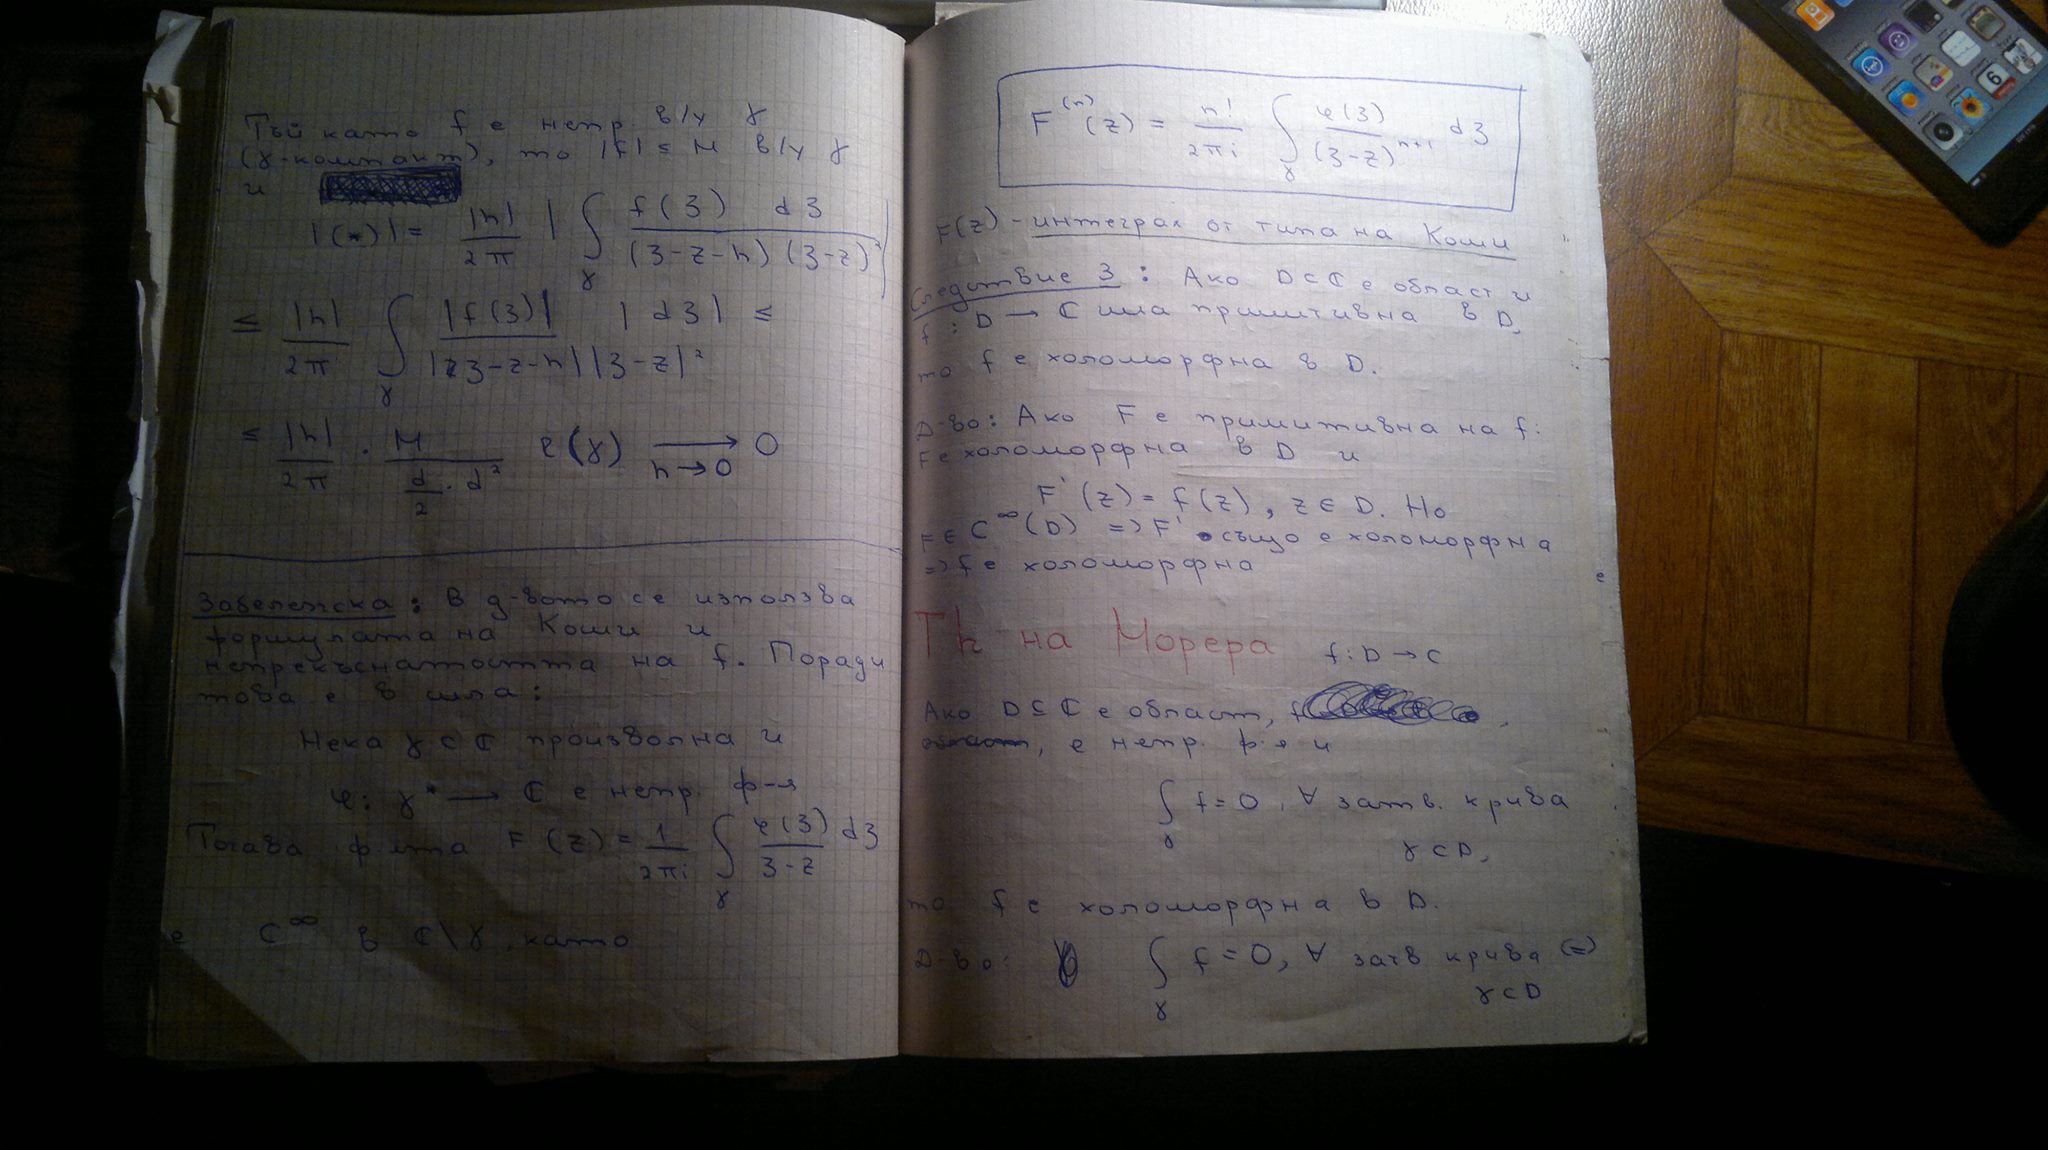 Тъй като f е непр. в/у γ
(γ-компакт), то |f| ≤ M в/у γ
и
|(*)| = |h|/2π | ∫_γ f(ζ) dζ / (ζ-z-h) (ζ-z)² |
≤ |h|/2π ∫_γ |f(ζ)| / |ζ-z-h||ζ-z|² |dζ| ≤
≤ |h|/2π · M / (d/2 · d²) ℓ(γ) ⟶_{h→0} 0
Забележка: В д-вото се използва
формулата на Коши и
непрекъснатостта на f. Поради
това е в сила:
Нека γ ⊂ ℂ произволна и
φ: γ* ⟶ ℂ е непр. ф-я
Тогава ф-ята F(z) = 1/2πi ∫_γ φ(ζ)/(ζ-z) dζ
е C^∞ в ℂ\γ, като
F^(n)(z) = n!/2πi ∫_γ φ(ζ)/(ζ-z)^{n+1} dζ
F(z) - интеграл от типа на Коши
Следствие 3: Ако D⊂ℂ е област и
f: D → ℂ има примитивна в D,
то f е холоморфна в D.
D-во: Ако F е примитивна на f:
F е холоморфна в D и
F'(z) = f(z), z ∈ D. Но
F ∈ C^∞(D) => F' също е холоморфна
=> f е холоморфна
Th на Морера f: D → C
Ако D ⊆ ℂ е област, f
област, е непр. ф-я и
∫_γ f = 0, ∀ затв. крива
γ ⊂ D,
то f е холоморфна в D.
D-во: ∫_γ f = 0, ∀ затв крива (=)
γ ⊂ D